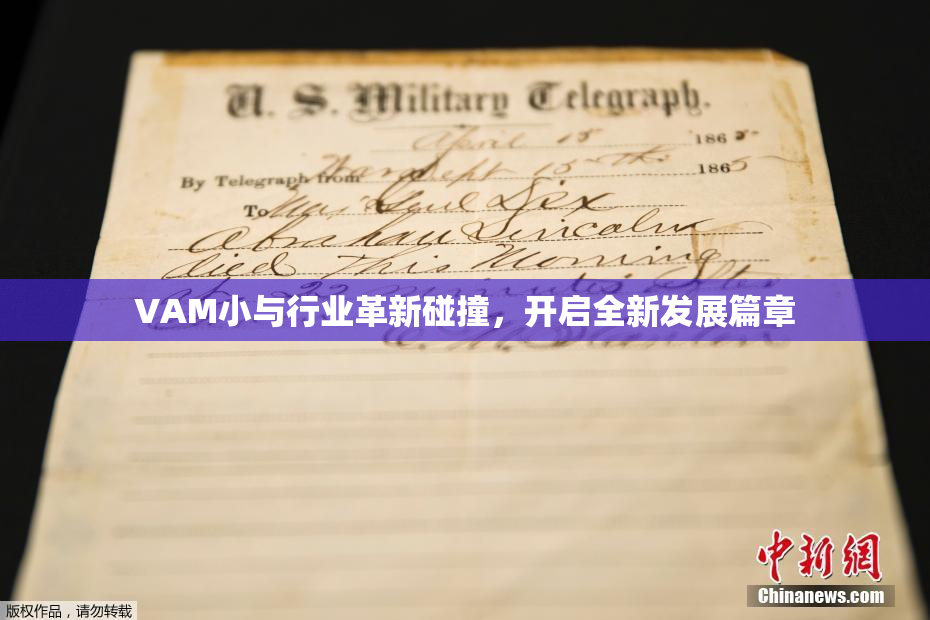 U. S. Military Telegraph.
April 15 1865
By Telegraph from War Dept 15th 1865
To Maj Genl Dix
Abraham Lincoln
died This Morning
at 22 minutes after
VAM小与行业革新碰撞，开启全新发展篇章
中新网
Chinanews.com
版权作品，请勿转载